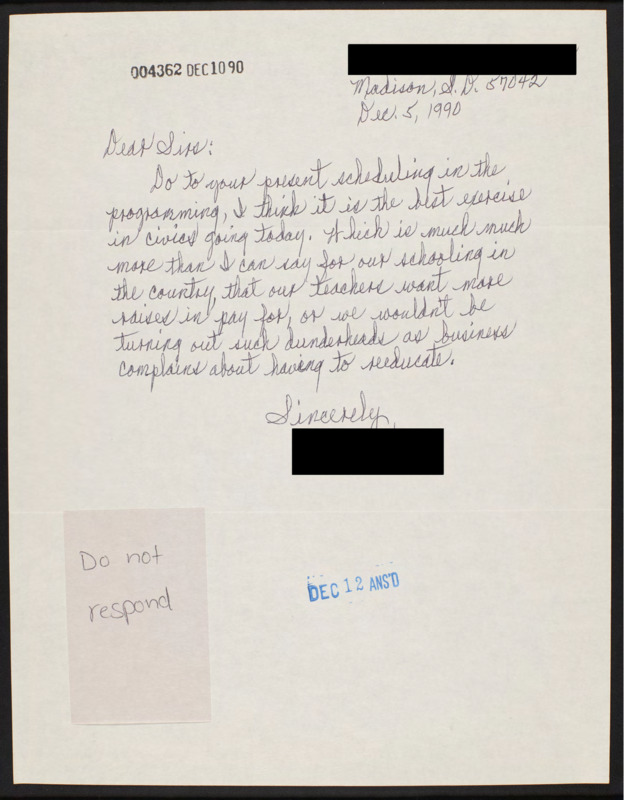 004362 DEC 10 90
Madison, S.D. 57042
Dec. 5, 1990
Dear Sirs:
Do to your present scheduling in the
programming, I think it is the best exercise
in civics going today. Which is much much
more than I can say for our schooling in
the country, that our teachers want more
raises in pay for, or we wouldn't be
turning out such dunderheads as business
complains about having to reeducate.
Sincerely,
Do not
respond
DEC 12 ANS'D